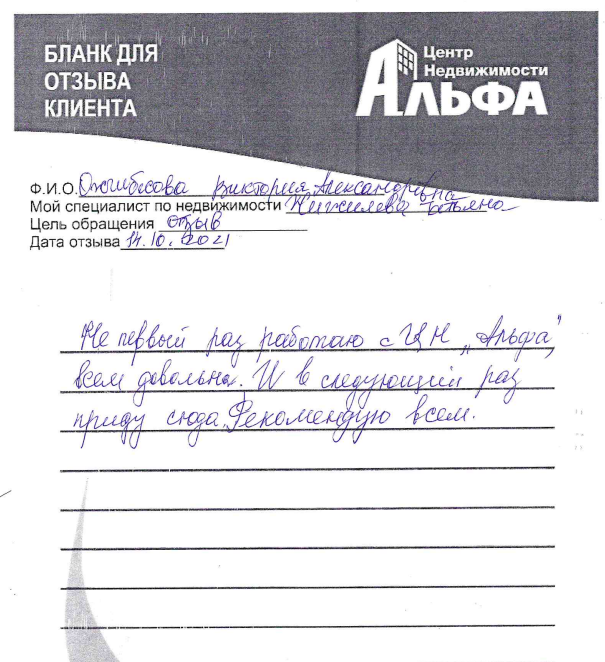 БЛАНК ДЛЯ
ОТЗЫВА
КЛИЕНТА
Центр
Недвижимости
АЛЬФА
Ф.И.О. Виктория Александровна
Мой специалист по недвижимости Татьяна
Цель обращения отзыв
Дата отзыва 14.10.2021
Не первый раз работаю с ЦН „Альфа”,
всем довольна. И в следующий раз
приду сюда. Рекомендую всем.